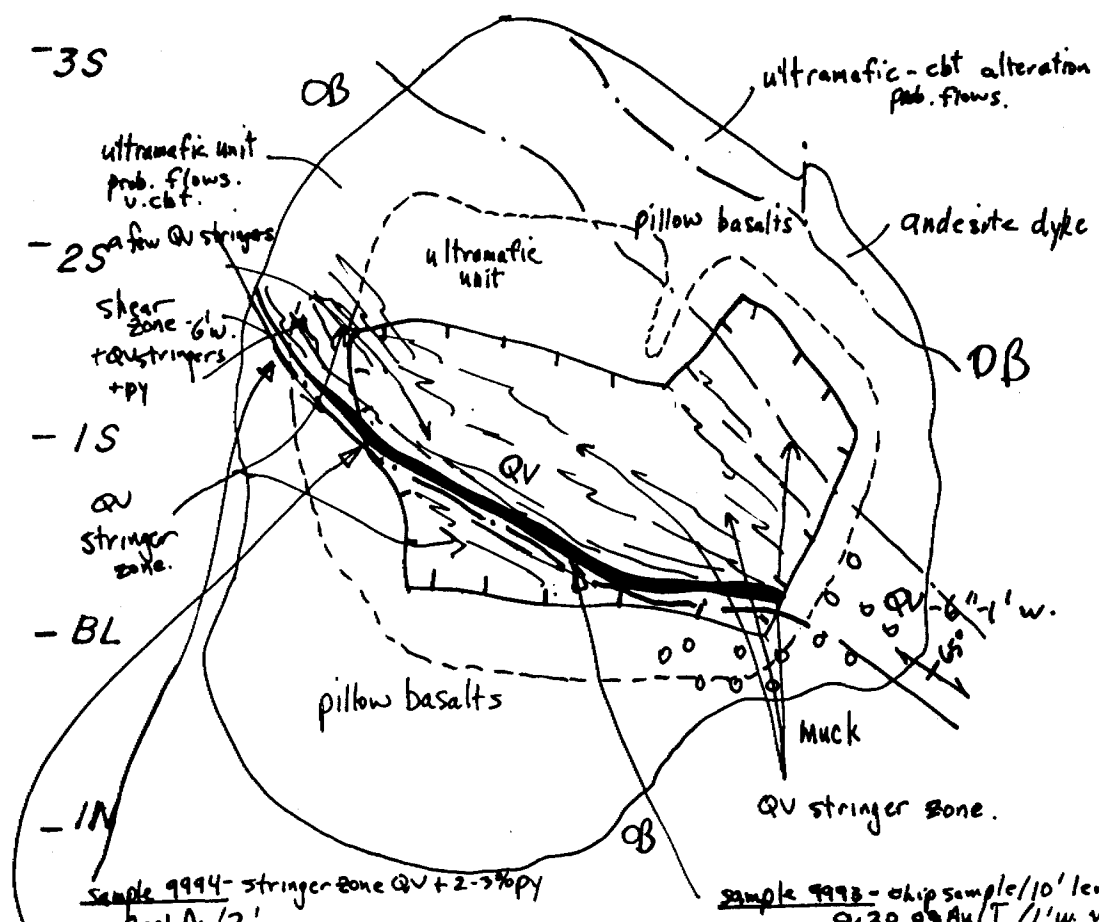 -3S
OB
ultramafic-cbt alteration
prob. flows.
ultramafic unit
prob. flows.
v. cbt.
a few QV stringers
-2S
pillow basalts
andesite dyke
ultramafic
unit
shear
zone - 6'w.
+QV stringers
+py
OB
-1S
QV
QV
stringer
zone.
QV-6"-1' w.
-BL
pillow basalts
Muck
QV stringer zone.
-1N
OB
sample 9994- stringer zone QV + 2-3% py
sample 9993 - chip sample/10'